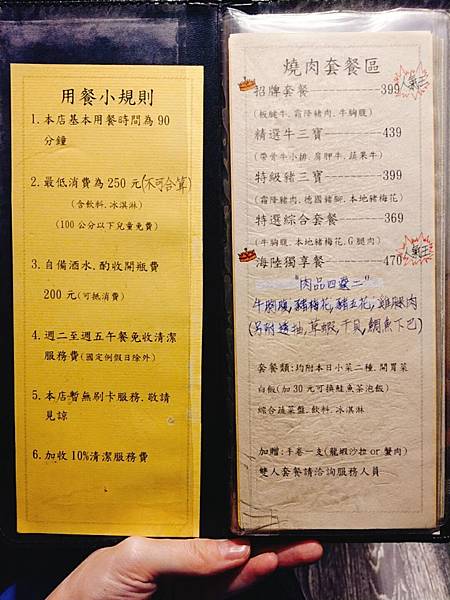 用餐小規則
1.本店基本用餐時間為90
分鐘
2.最低消費為250元(不可合算)
(含飲料.冰淇淋)
(100公分以下兒童免費)
3.自備酒水.酌收開瓶費
200元(可抵消費)
4.週二至週五午餐免收清潔
服務費(國定例假日除外)
5.本店暫無刷卡服務.敬請
見諒
6.加收10%清潔服務費
燒肉套餐區
招牌套餐----------399 人氣王
(板腱牛.霜降豬肉.牛胸腹)
精選牛三寶--------439
(帶骨牛小排.肩胛牛.蔬果牛)
特級豬三寶--------399
(霜降豬肉.德國豬腳.本地豬梅花)
特選綜合套餐------369
(牛胸腹.本地豬梅花.G腿肉)
海陸獨享餐--------470 人氣王
"肉品四選二"
牛胸腹,豬梅花,豬五花,雞腿肉
(另附透抽,草蝦,干貝,鯛魚下巴)
套餐類:均附本日小菜二種.開胃菜
白飯(加30元可換鮭魚茶泡飯)
綜合蔬菜盤.飲料.冰淇淋
加贈:手卷一支(龍蝦沙拉or蟹肉)
雙人套餐請洽詢服務人員